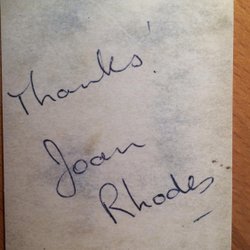 Thanks!
Joan
Rhodes